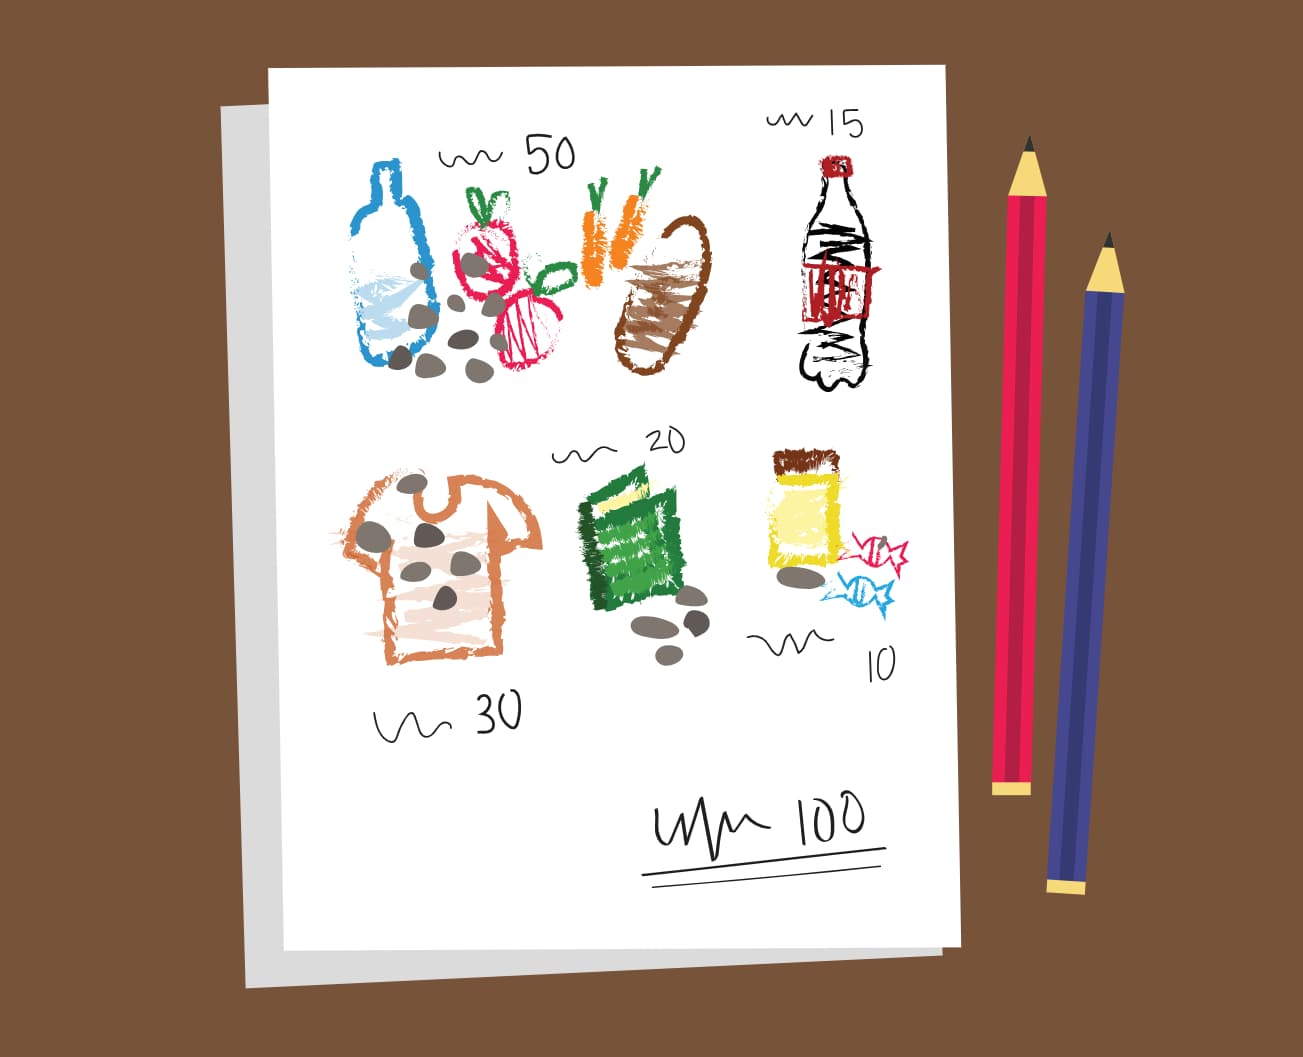 50
15
20
10
30
100